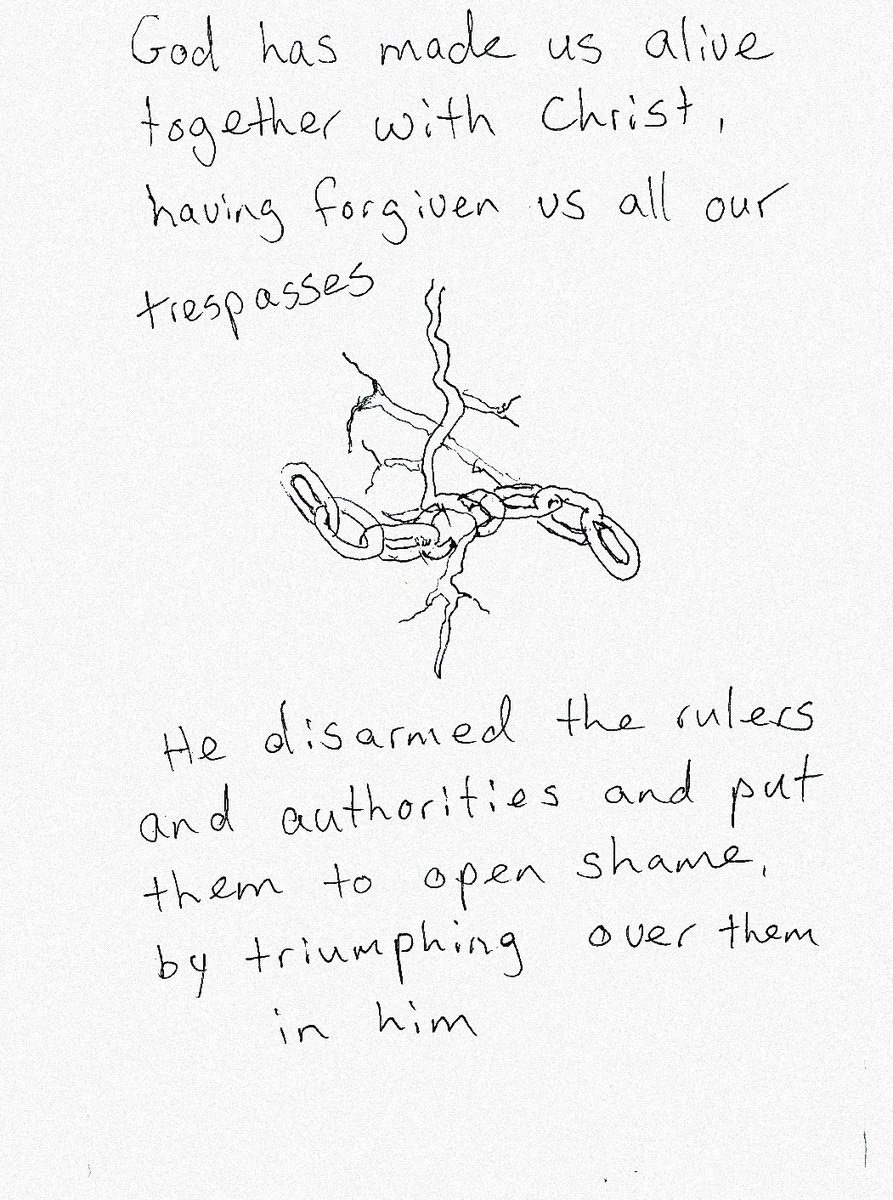 God has made us alive
together with Christ,
having forgiven us all our
trespasses
He disarmed the rulers
and authorities and put
them to open shame,
by triumphing over them
in him